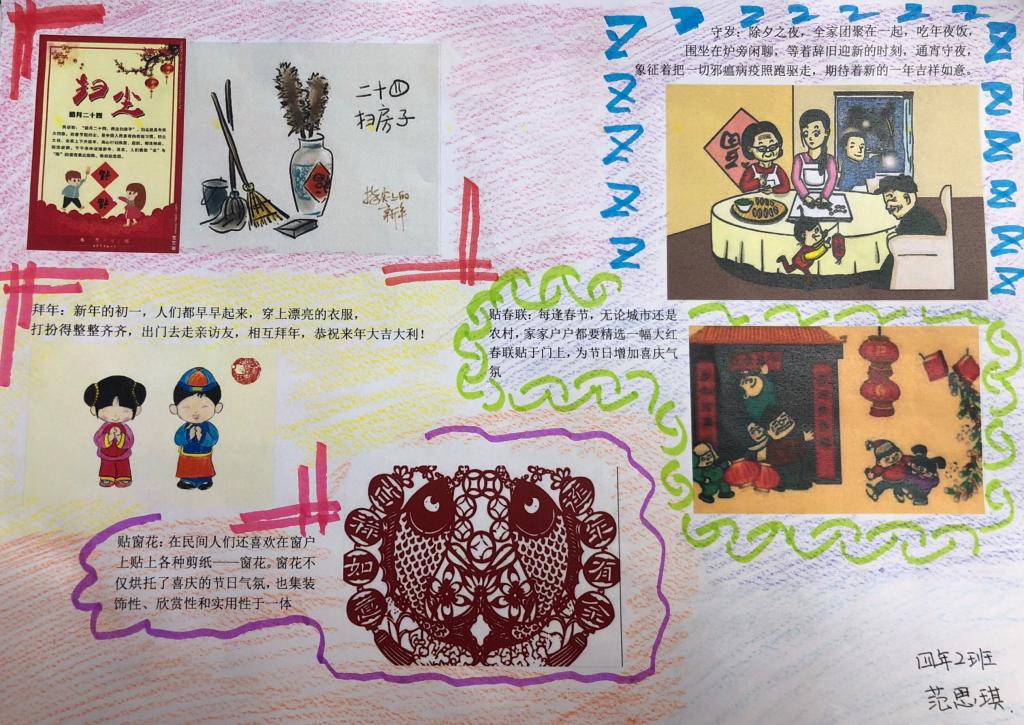 扫尘
腊月二十四
二十四
扫房子
指尖上的
新年
守岁：除夕之夜，全家团聚在一起，吃年夜饭，
围坐在炉旁闲聊，等着辞旧迎新的时刻，通宵守夜，
象征着把一切邪瘟病疫照跑驱走，期待着新的一年吉祥如意。
拜年：新年的初一，人们都早早起来，穿上漂亮的衣服，
打扮得整整齐齐，出门去走亲访友，相互拜年，恭祝来年大吉大利！
贴春联：每逢春节，无论城市还是
农村，家家户户都要精选一幅大红
春联贴于门上，为节日增加喜庆气
氛
贴窗花：在民间人们还喜欢在窗户
上贴上各种剪纸——窗花。窗花不
仅烘托了喜庆的节日气氛，也集装
饰性、欣赏性和实用性于一体
如意
有余
四年2班
范思琪